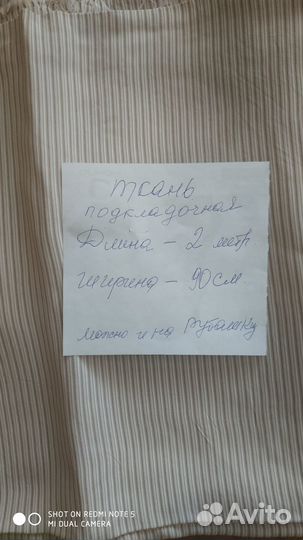 ткань
подкладочная
Длина - 2 метр
ширина - 90 см
можно и на рубашку
SHOT ON REDMI NOTE 5
MI DUAL CAMERA
Avito